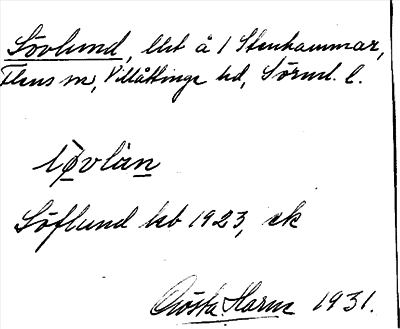 Sövlund, lht å 1 Stenhammar,
Flens sn, Villåttinge hd, Sörml. l.
Söflund kb 1923, ek
Gösta Harne 1931.